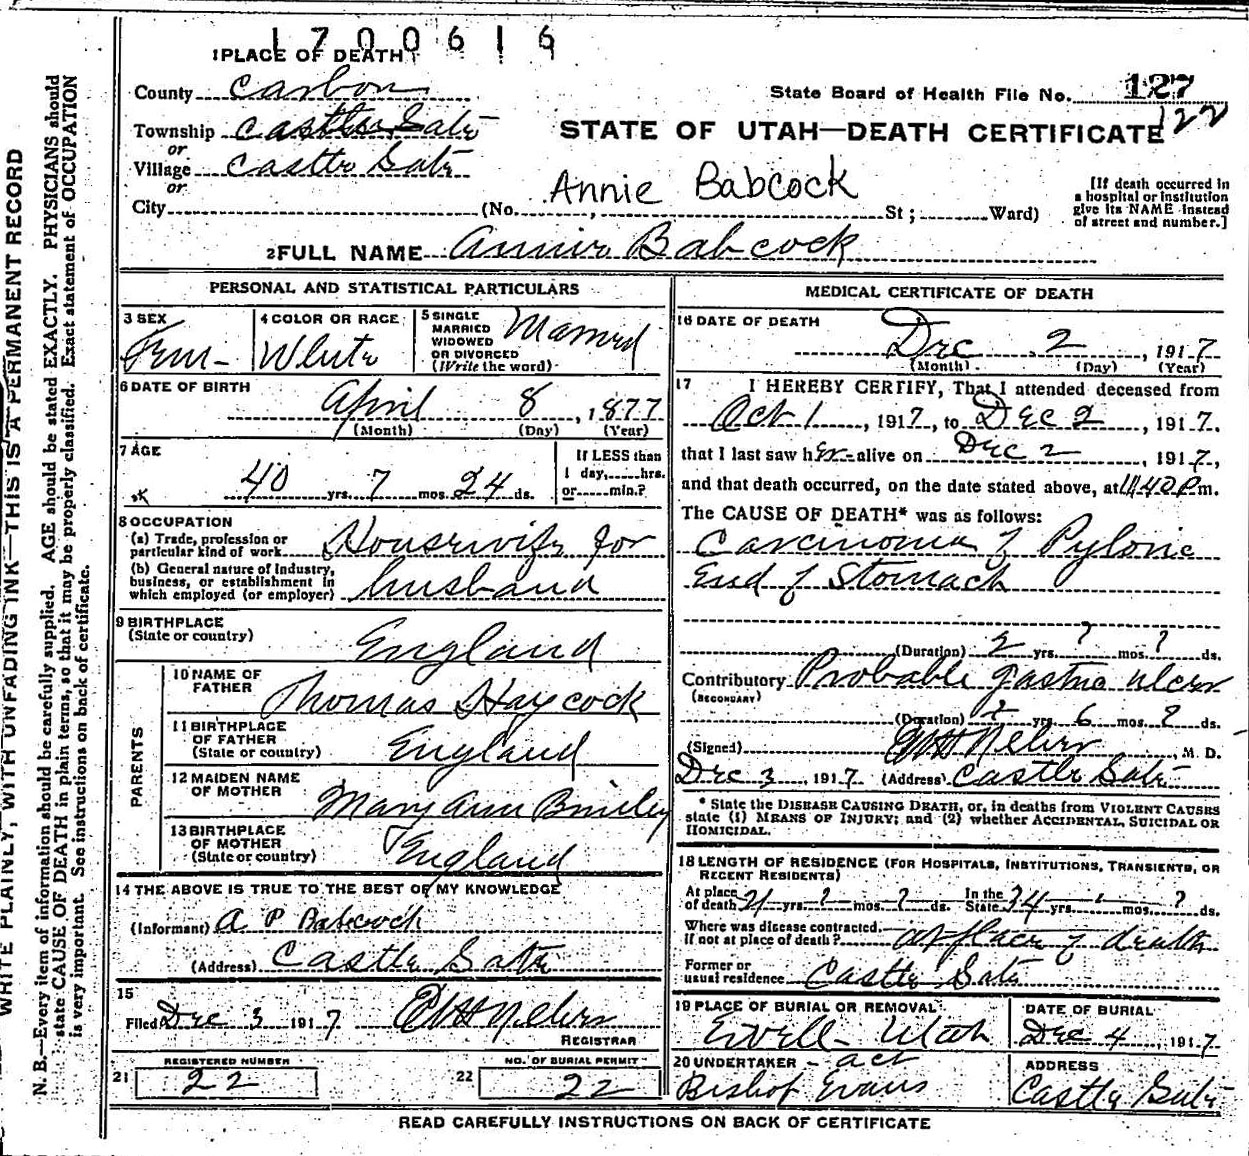 1700616
1 PLACE OF DEATH
County Carbon
State Board of Health File No. 127
122
Township Castle Gate
STATE OF UTAH—DEATH CERTIFICATE
or
Village Castle Gate
or
Annie Babcock
[If death occurred in a hospital or institution give its NAME instead of street and number.]
City (No. , St ; Ward)
2 FULL NAME Annie Babcock
PERSONAL AND STATISTICAL PARTICULARS
3 SEX
Fem-
4 COLOR OR RACE
White
5 SINGLE MARRIED WIDOWED OR DIVORCED (Write the word)
Married
6 DATE OF BIRTH
April 8, 1877
(Month) (Day) (Year)
7 AGE
40 yrs. 7 mos. 24 ds.
If LESS than 1 day, hrs. or min.?
8 OCCUPATION
(a) Trade, profession or particular kind of work Housewife for
(b) General nature of industry, business, or establishment in which employed (or employer) husband
9 BIRTHPLACE
(State or country) England
PARENTS
10 NAME OF FATHER Thomas Haycock
11 BIRTHPLACE OF FATHER (State or country) England
12 MAIDEN NAME OF MOTHER Mary Ann
13 BIRTHPLACE OF MOTHER (State or country) England
14 THE ABOVE IS TRUE TO THE BEST OF MY KNOWLEDGE
(Informant) A P Babcock
(Address) Castle Gate
15
Filed Dec 3 1917
REGISTRAR
REGISTERED NUMBER
21 22
NO. OF BURIAL PERMIT
22 22
MEDICAL CERTIFICATE OF DEATH
16 DATE OF DEATH
Dec 2, 1917
(Month) (Day) (Year)
17 I HEREBY CERTIFY, That I attended deceased from
Oct 1, 1917, to Dec 2, 1917.
that I last saw her alive on Dec 2, 1917,
and that death occurred, on the date stated above, at 11.40 P m.
The CAUSE OF DEATH* was as follows:
Carcinoma of Pyloric
End of Stomach
(Duration) 2 yrs. ? mos. ? ds.
Contributory Probable gastric ulcer
(SECONDARY)
(Duration) yrs. 6 mos. ? ds.
(Signed) , M. D.
Dec 3, 1917 (Address) Castle Gate
* State the DISEASE CAUSING DEATH, or, in deaths from VIOLENT CAUSES
state (1) MEANS OF INJURY; and (2) whether ACCIDENTAL, SUICIDAL OR
HOMICIDAL.
18 LENGTH OF RESIDENCE (FOR HOSPITALS, INSTITUTIONS, TRANSIENTS, OR
RECENT RESIDENTS)
At place of death 21 yrs. ? mos. ? ds. In the State 34 yrs. mos. ? ds.
Where was disease contracted, if not at place of death? at place of death
Former or usual residence Castle Gate
19 PLACE OF BURIAL OR REMOVAL
Utah
DATE OF BURIAL
Dec 4, 1917
20 UNDERTAKER - act
Bishop Evans
ADDRESS
Castle Gate
READ CAREFULLY INSTRUCTIONS ON BACK OF CERTIFICATE
WRITE PLAINLY, WITH UNFADING INK—THIS IS A PERMANENT RECORD
N. B.—Every item of information should be carefully supplied. AGE should be stated EXACTLY. PHYSICIANS should
state CAUSE OF DEATH in plain terms, so that it may be properly classified. Exact statement of OCCUPATION
is very important. See instructions on back of certificate.